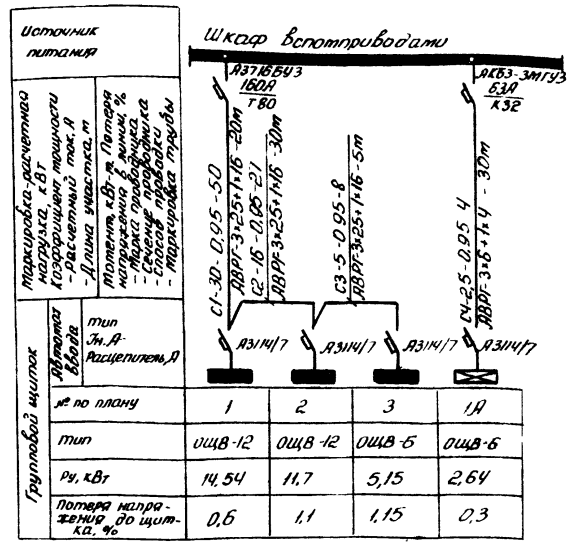 Источник
питания
Шкаф вспомприводами
А3716БУЗ
160А
Т80
АК63-3МГУЗ
63А
К32
Маркировка-расчетная
нагрузка, кВт
Коэффициент мощности
- Расчетный ток, А
- Длина участка, м
Момент, кВт·м. Потеря
напряжения в линии, %
- Марка проводника
- Сечение проводника
- Способ проводки
- Маркировка трубы
С1-30-0,95-50
АВРГ-3×25+1×16-20м
С2-16-0,95-27
АВРГ-3×25+1×16-30м
С3-5-0,95-8
АВРГ-3×25+1×16-5м
С4-2,5-0,95-4
АВРГ-3×6+1×4 - 30м
Групповой щиток
Автомат
ввода
тип
Iн. А-
Расцепитель, А
А3114/7
А3114/7
А3114/7
А3114/7
№ по плану
1
2
3
1А
тип
ОЩВ-12
ОЩВ-12
ОЩВ-6
ОЩВ-6
Ру, кВт
14,54
11,7
5,15
2,64
Потеря напря-
жения до щит-
ка, %
0,6
1,1
1,15
0,3